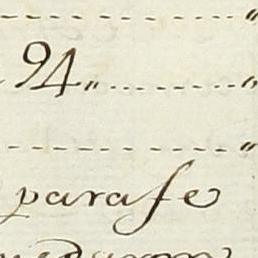 "
94 " "
"
parafe